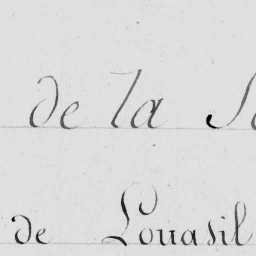 de la
de Louasil